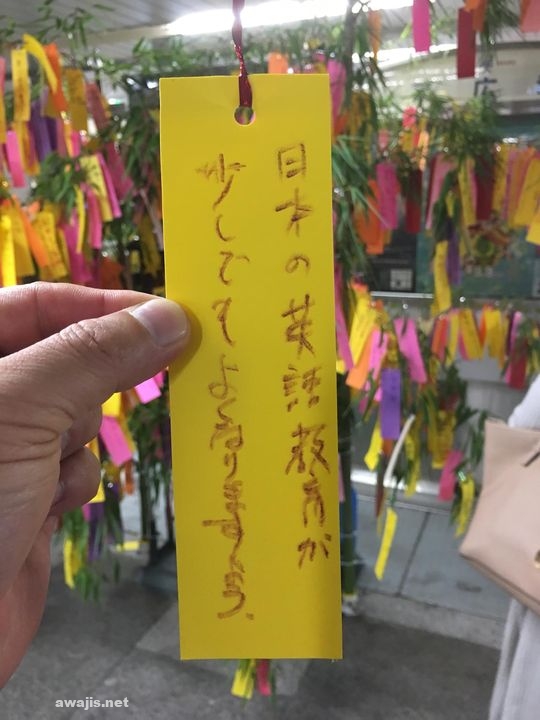 日本の英語教育が
少しでもよくなりますよう。
awajis.net